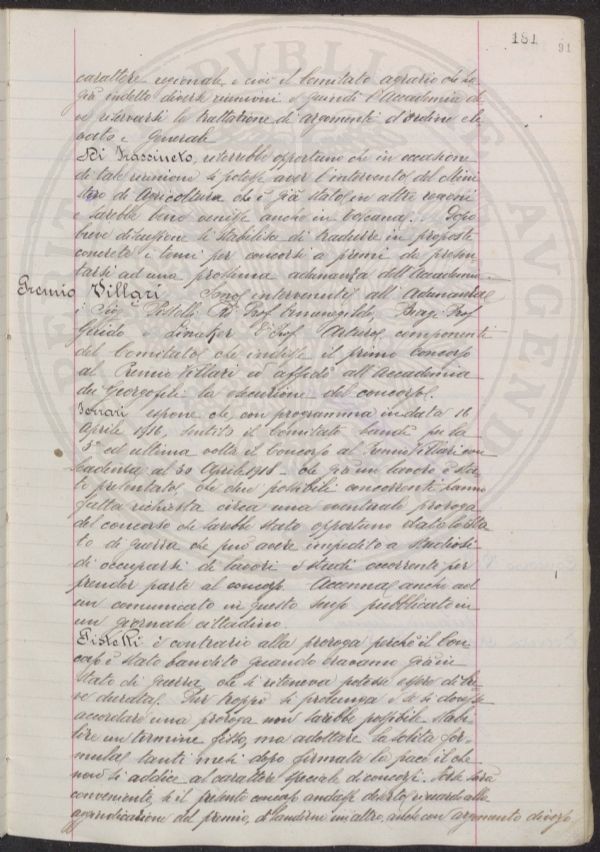 181
91
carattere regionale, e cioè il Comitato agrario che ha
già indetto diverse riunioni e quindi l'Accademia de
ve riservarsi la trattazione di argomenti d'ordine ele
vato e generale
Di Frassineto, riterrebbe opportuno che in occasione
di tale riunione si potesse aver l'intervento del Mini
stero di Agricoltura che è già stato in altre regioni
e sarebbe bene venisse anche in Toscana. Dopo
breve discussione si stabilisce di tradurre in proposte
concrete i temi per concorsi a premi da presen
tarsi ad una prossima adunanza dell'Accademia.
Premio Villari. Sono intervenuti all'Adunanza
i Sig. Pistelli Prof. Ermenegildo, Biagi Prof.
Guido e Linaker Prof. Arturo componenti
del Comitato che indisse il primo concorso
al Premio Villari ed affidò all'Accademia
dei Georgofili la esecuzione del concorso.
Ferrari espone che con programma in data 16
Aprile 1916, sentito il Comitato bandì per la
3a ed ultima volta il Concorso al Premio Villari con
scadenza al 30 Aprile 1918 - che già un lavoro è sta
to presentato, che due possibili concorrenti hanno
fatta richiesta circa una eventuale proroga
del concorso che sarebbe stato opportuno dato lo sta
to di guerra che può avere impedito a studiosi
di occuparsi di lavori e studi occorrenti per
prender parte al concorso. Accenna anche ad
un comunicato in questo senso pubblicato in
un giornale cittadino.
Pistelli è contrario alla proroga perchè il Con
corso è stato bandito quando eravamo già in
stato di guerra, che si riteneva potesse esser di bre
ve durata. Pur troppo si prolunga e se si dovesse
accordare una proroga non sarebbe possibile stabi
lire un termine fisso, ma adottare la solita for
mula tanti mesi dopo firmata la pace il che
non si addice al carattere speciale di concorsi. Forse sarà
conveniente, se il presente concorso andasse deserto riguardo alla
aggiudicazione del premio, di bandirne un altro, anche con argomento diverso